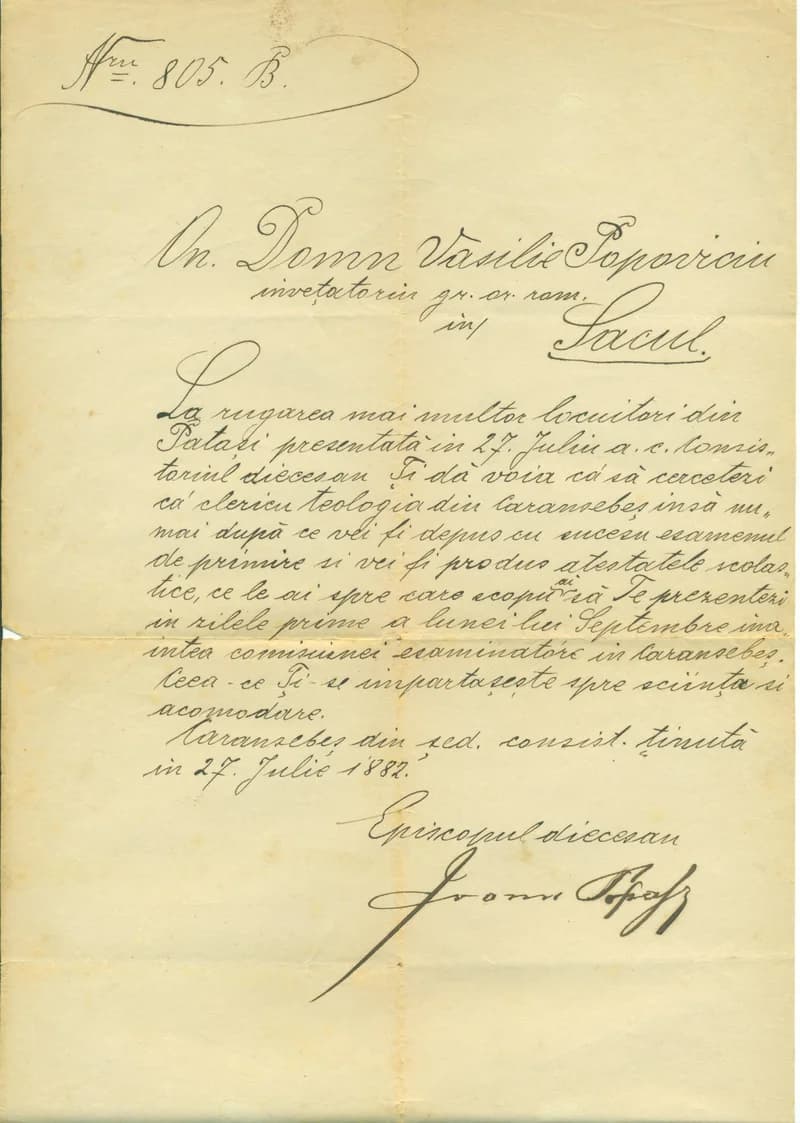 Nru. 805. B.
On. Domn Vasilie Popoviciu
invețatoriu gr. or. rom.
in/
Sacul.
La rugarea mai multor locuitori din
Patași presentată in 27. Juliu a. c. Consis„
toriul diecesan Ți dă voia că să cercetezi
că clericu teologia din Caransebeș insă nu„
mai după ce vei fi depus cu sucesu esamenul
de primire si vei fi produs atestatele scolas„
tice, ce le ai spre care scopu ai să Te prezentezi
in zilele prime a lunei lui Septembre ina„
intea comisiunei esaminatóre in Caransebeș.
Ceea-ce Ți-se impartașește spre sciința si
acomodare.
Caransebeș din șed. consist. ținută
in 27. Julie 1882.
Episcopul diecesan
Ioann Popasz